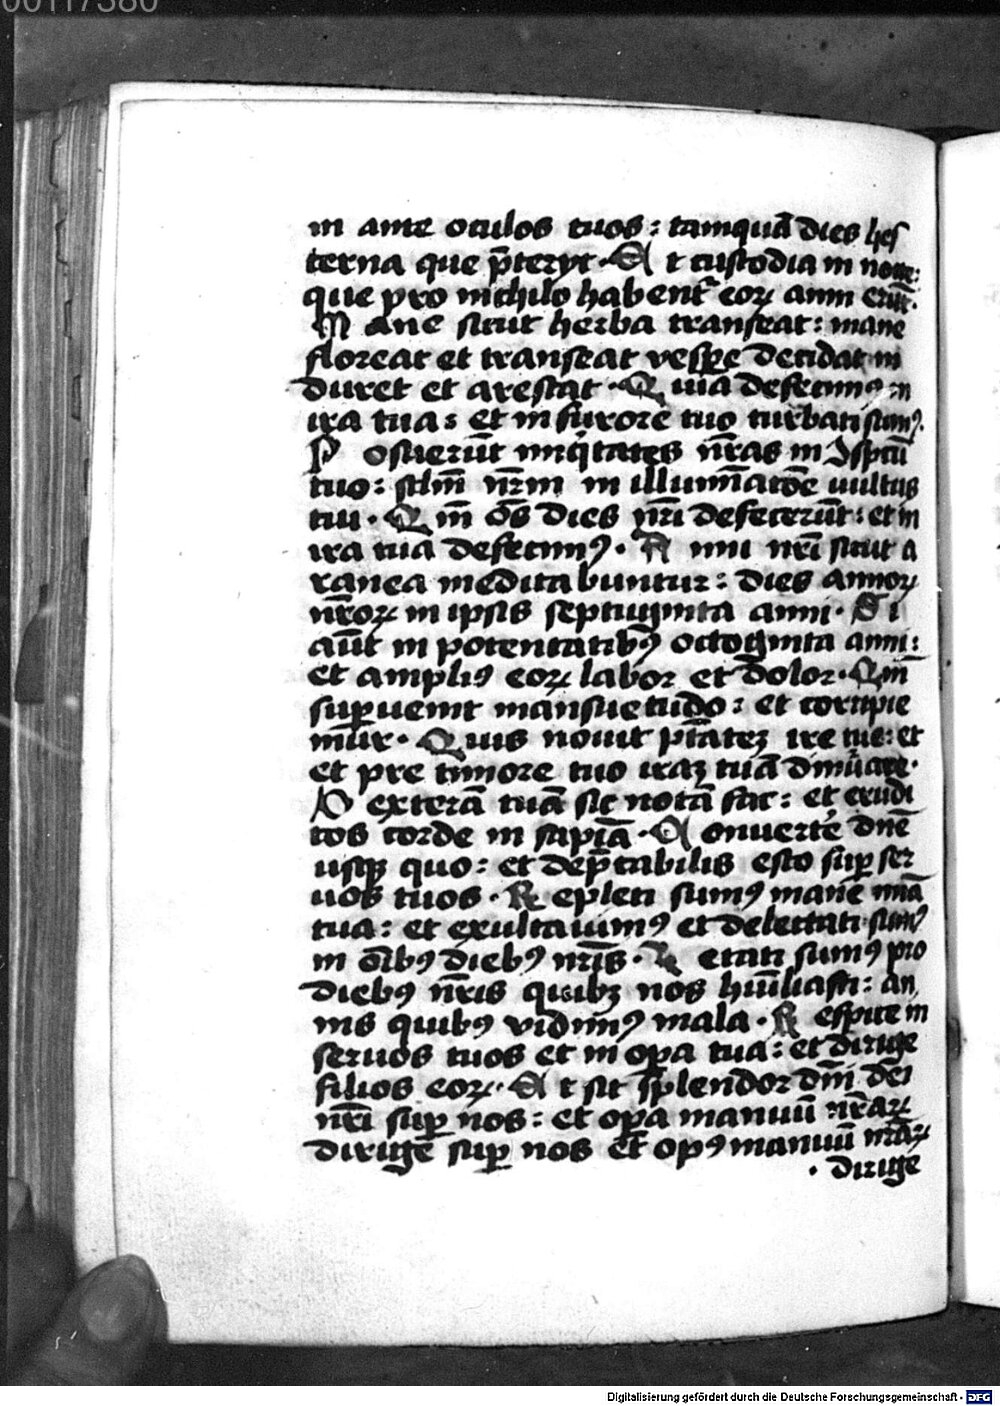 00117380
ni ante oculos tuos : tamquā dies hes
terna que p̄teryt · Et custodia in nocte :
que pro nichilo habent᷑ eoꝝ anni erūt ·
Mane sicut herba transeat : mane
floreat et transeat vesp̱e decidat in
duret et arescat · Quia defecimꝰ in
ira tua : et in furore tuo turbati sumꝰ ·
Posuerūt iniq̄tates nr̄as in 9sp̄cū
tuo : sclm̄ nr̄m in illumīacōe uultus
tui · Qm̄ ōs dies nr̄i defecerūt : et in
ira tua defecimꝰ · Anni nr̄i sicut a
ranea meditabuntur : dies annoꝝ
nr̄oꝝ in ipsis septuginta anni · Si
aūt in potentatibꝰ octoginta anni :
et ampliꝰ eoꝝ labor et dolor · Qm̄
suꝑuenit mansuetudo : et corripie
mur · Quis nouit p̄tatē ire tue : et
et pre timore tuo iraꝫ tuā dinūare ·
Dexterā tuā sic notā fac : et erudi
tos corde in sapīa · Conuerte dn̄e
usqꝫ quo : et dep̄cabilis esto suꝑ ser
uos tuos · Repleti sumꝰ mane mīa
tua : et exultauimꝰ et delectati sumꝰ
in oībꝰ diebꝰ nr̄is · Letati sumꝰ pro
diebꝰ nr̄is quibꝫ nos humīliasti : an
nis quibꝰ vidimꝰ mala · Respice in
seruos tuos et in oꝑa tua : et dirige
filios eoꝝ · Et sit splendor dn̄i dei
nr̄i suꝑ nos : et oꝑa manuū nr̄aꝝ
dirige suꝑ nos et opꝰ manuū nr̄aꝝ
· dirige
Digitalisierung gefördert durch die Deutsche Forschungsgemeinschaft - DFG